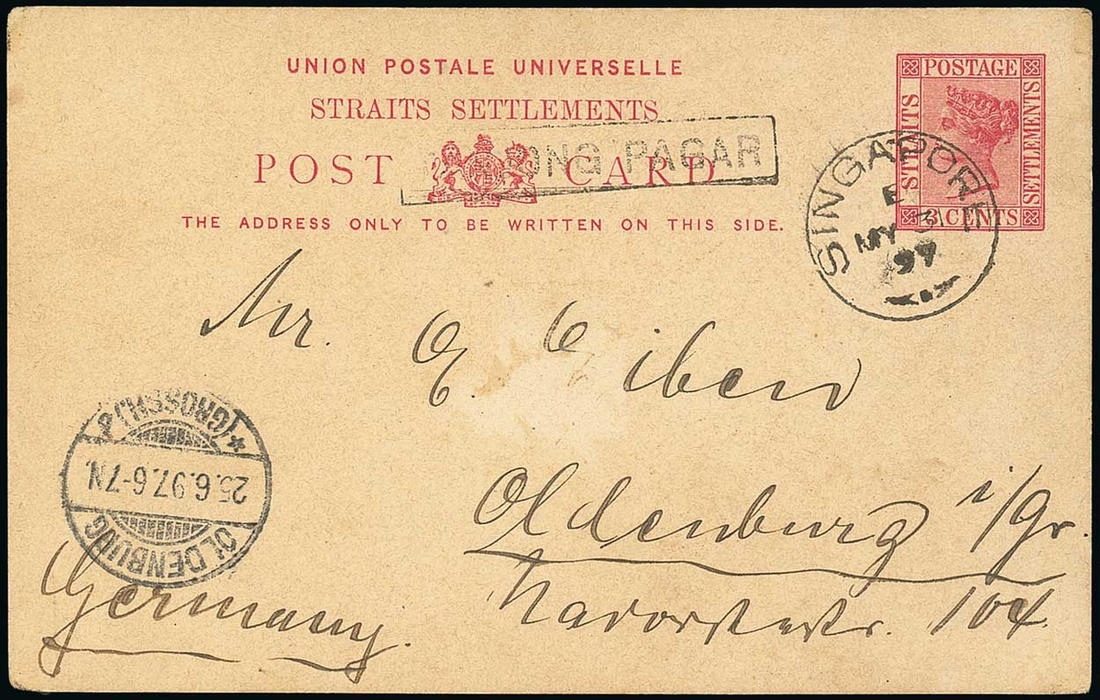 UNION POSTALE UNIVERSELLE
STRAITS SETTLEMENTS
POST CARD
THE ADDRESS ONLY TO BE WRITTEN ON THIS SIDE.
POSTAGE
STRAITS
SETTLEMENTS
3 CENTS
ONG PAGAR
SINGAPORE
E
MY 3
97
Mr. E E iben
Oldenburg i/Gr.
104
Germany.
OLDENBURG
25.6.97.6-7N.
*(GROSSH.)*